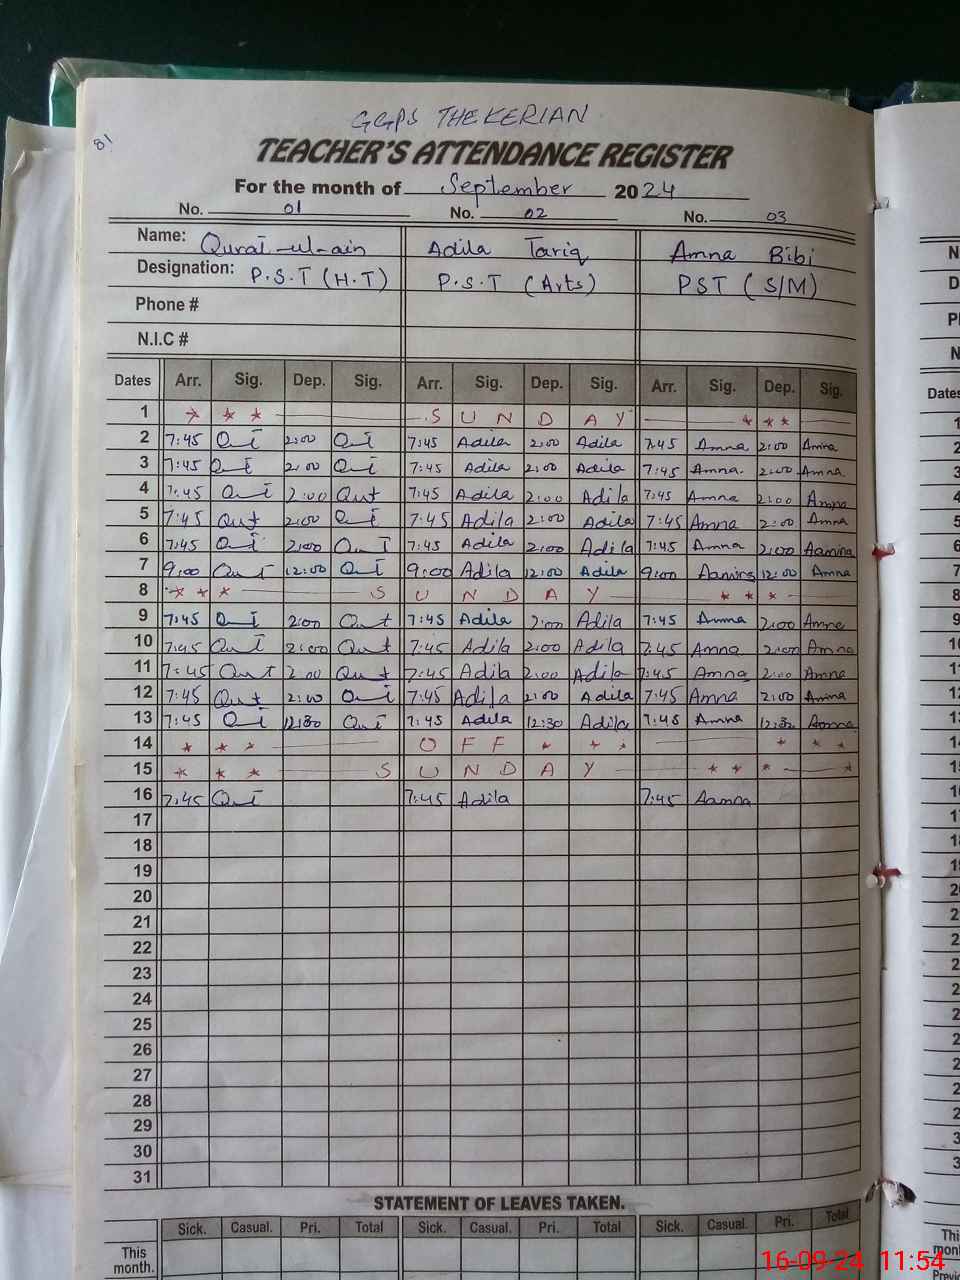 81
GGPS THEKERIAN
TEACHER'S ATTENDANCE REGISTER
For the month of September 2024
No. 01 No. 02 No. 03
Name: Qurat-ul-ain Adila Tariq Amna Bibi
Designation: P.S.T (H.T) P.S.T (Arts) PST (S/M)
Phone #
N.I.C #
Dates Arr. Sig. Dep. Sig. Arr. Sig. Dep. Sig. Arr. Sig. Dep. Sig.
1 * * * SUNDAY * * *
2 7:45 2:00 7:45 Adila 2:00 Adila 7:45 Amna 2:00 Amna
3 7:45 2:00 7:45 Adila 2:00 Adila 7:45 Amna. 2:00 Amna
4 7:45 2:00 7:45 Adila 2:00 Adila 7:45 Amna 2:00 Amna
5 7:45 2:00 7:45 Adila 2:00 Adila 7:45 Amna 2:00 Amna
6 7:45 2:00 7:45 Adila 2:00 Adila 7:45 Amna 2:00 Aamna
7 9:00 12:00 9:00 Adila 12:00 Adila 9:00 Aamna 12:00 Amna
8 * * * SUNDAY * * *
9 7:45 2:00 7:45 Adila 2:00 Adila 7:45 Amna 2:00 Amna
10 7:45 2:00 7:45 Adila 2:00 Adila 7:45 Amna 2:00 Amna
11 7:45 2:00 7:45 Adila 2:00 Adila 7:45 Amna 2:00 Amna
12 7:45 2:00 7:45 Adila 2:00 Adila 7:45 Amna 2:00 Amna
13 7:45 12:30 7:45 Adila 12:30 Adila 7:45 Amna 12:30 Amna
14 * * * OFF * * * * * *
15 * * * SUNDAY * * * *
16 7:45 7:45 Adila 7:45 Aamna
17
18
19
20
21
22
23
24
25
26
27
28
29
30
31
STATEMENT OF LEAVES TAKEN.
Sick. Casual. Pri. Total Sick. Casual. Pri. Total Sick. Casual. Pri. Total
This month.
16-09-24 11:54